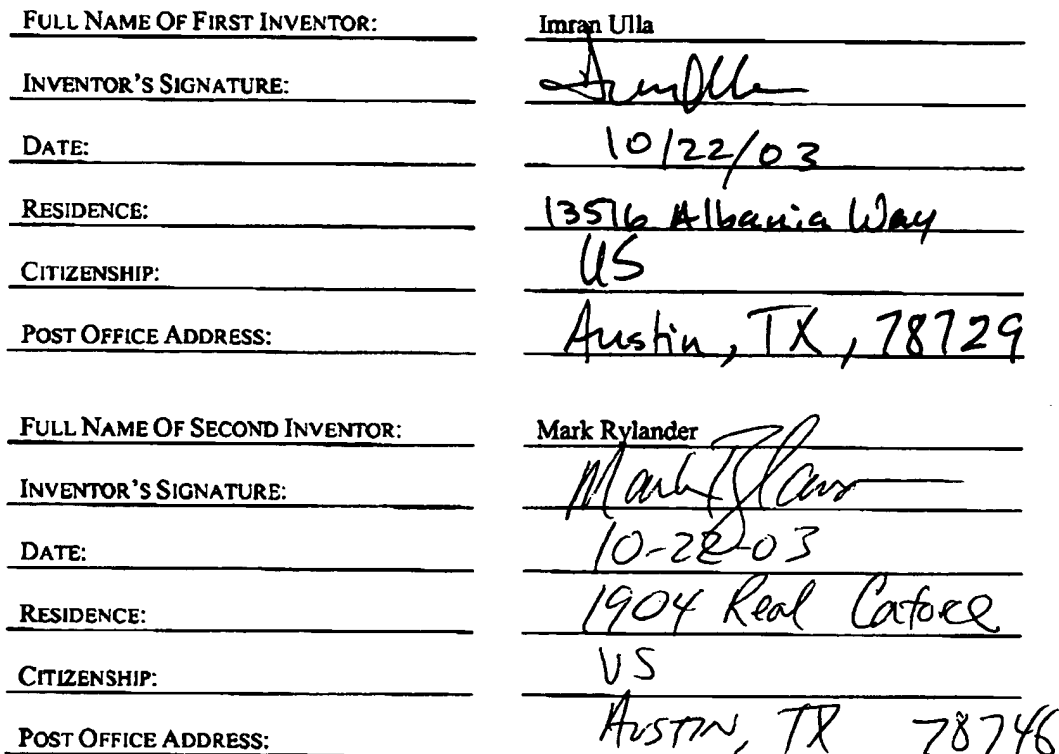 FULL NAME OF FIRST INVENTOR: Imran Ulla
INVENTOR'S SIGNATURE:
DATE: 10/22/03
RESIDENCE: 13516 Albania Way
CITIZENSHIP: US
POST OFFICE ADDRESS: Austin, TX, 78729
FULL NAME OF SECOND INVENTOR: Mark Rylander
INVENTOR'S SIGNATURE: Mark
DATE: 10-22-03
RESIDENCE: 1904 Real
CITIZENSHIP: US
POST OFFICE ADDRESS: AUSTIN, TX 78746